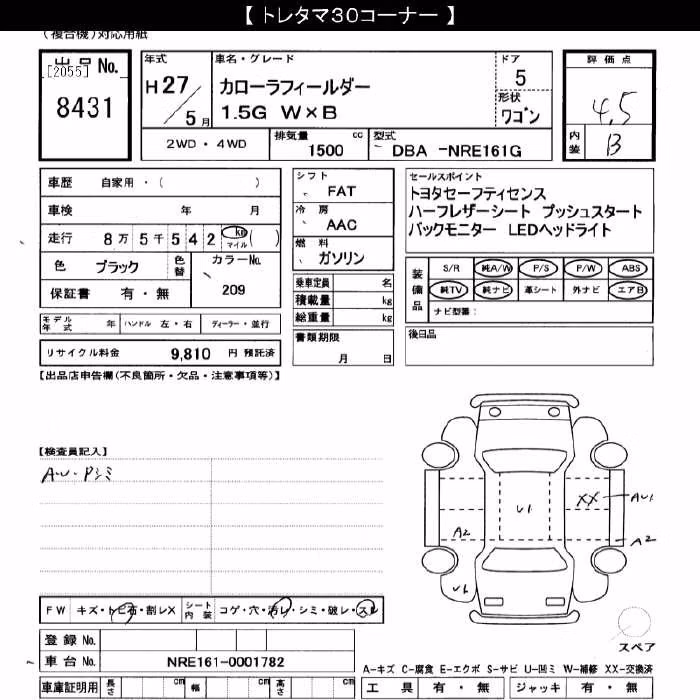 【 トレタマ30コーナー 】
(複合機)対応用紙
出品 No.
[2055]
8431
年式
H 27 / 5 月
車名・グレード
カローラフィールダー
1.5G W×B
ドア
5
形状
ワゴン
評価点
4.5
内装
B
2WD ・ 4WD
排気量 cc
1500
型式
DBA -NRE161G
車歴 自家用 ・ ( )
車検 年 月
走行 8 万 5 千 5 4 2 km マイル ( )
色 ブラック 色替 カラーNo.
209
保証書 有 ・ 無
シフト
FAT
冷房
AAC
燃料
ガソリン
乗車定員 名
積載量 kg
総重量 kg
セールスポイント
トヨタセーフティセンス
ハーフレザーシート プッシュスタート
バックモニター LEDヘッドライト
装備品
S/R 純A/W P/S P/W ABS
純TV 純ナビ 革シート 外ナビ エアB
ナビ型番:
モデル年式 年 ハンドル 左・右 ディーラー・並行
書類期限
月 日
後日品
リサイクル料金 9,810 円 預託済
【出品店申告欄(不良箇所・欠品・注意事項等)】
【検査員記入】
AW・Pシミ
U1
XX
AU1
A2
A2
U1
FW キズ・トビ石・割レX シート内装 コゲ・穴・汚レ・シミ・破レ・スレ
登録 No.
車台 No. NRE161-0001782
スペア
A-キズ C-腐食 E-エクボ S-サビ U-凹ミ W-補修 XX-交換済
車庫証明用 長さ cm 幅 cm 高さ cm
工具 有 ・ 無 ジャッキ 有 ・ 無